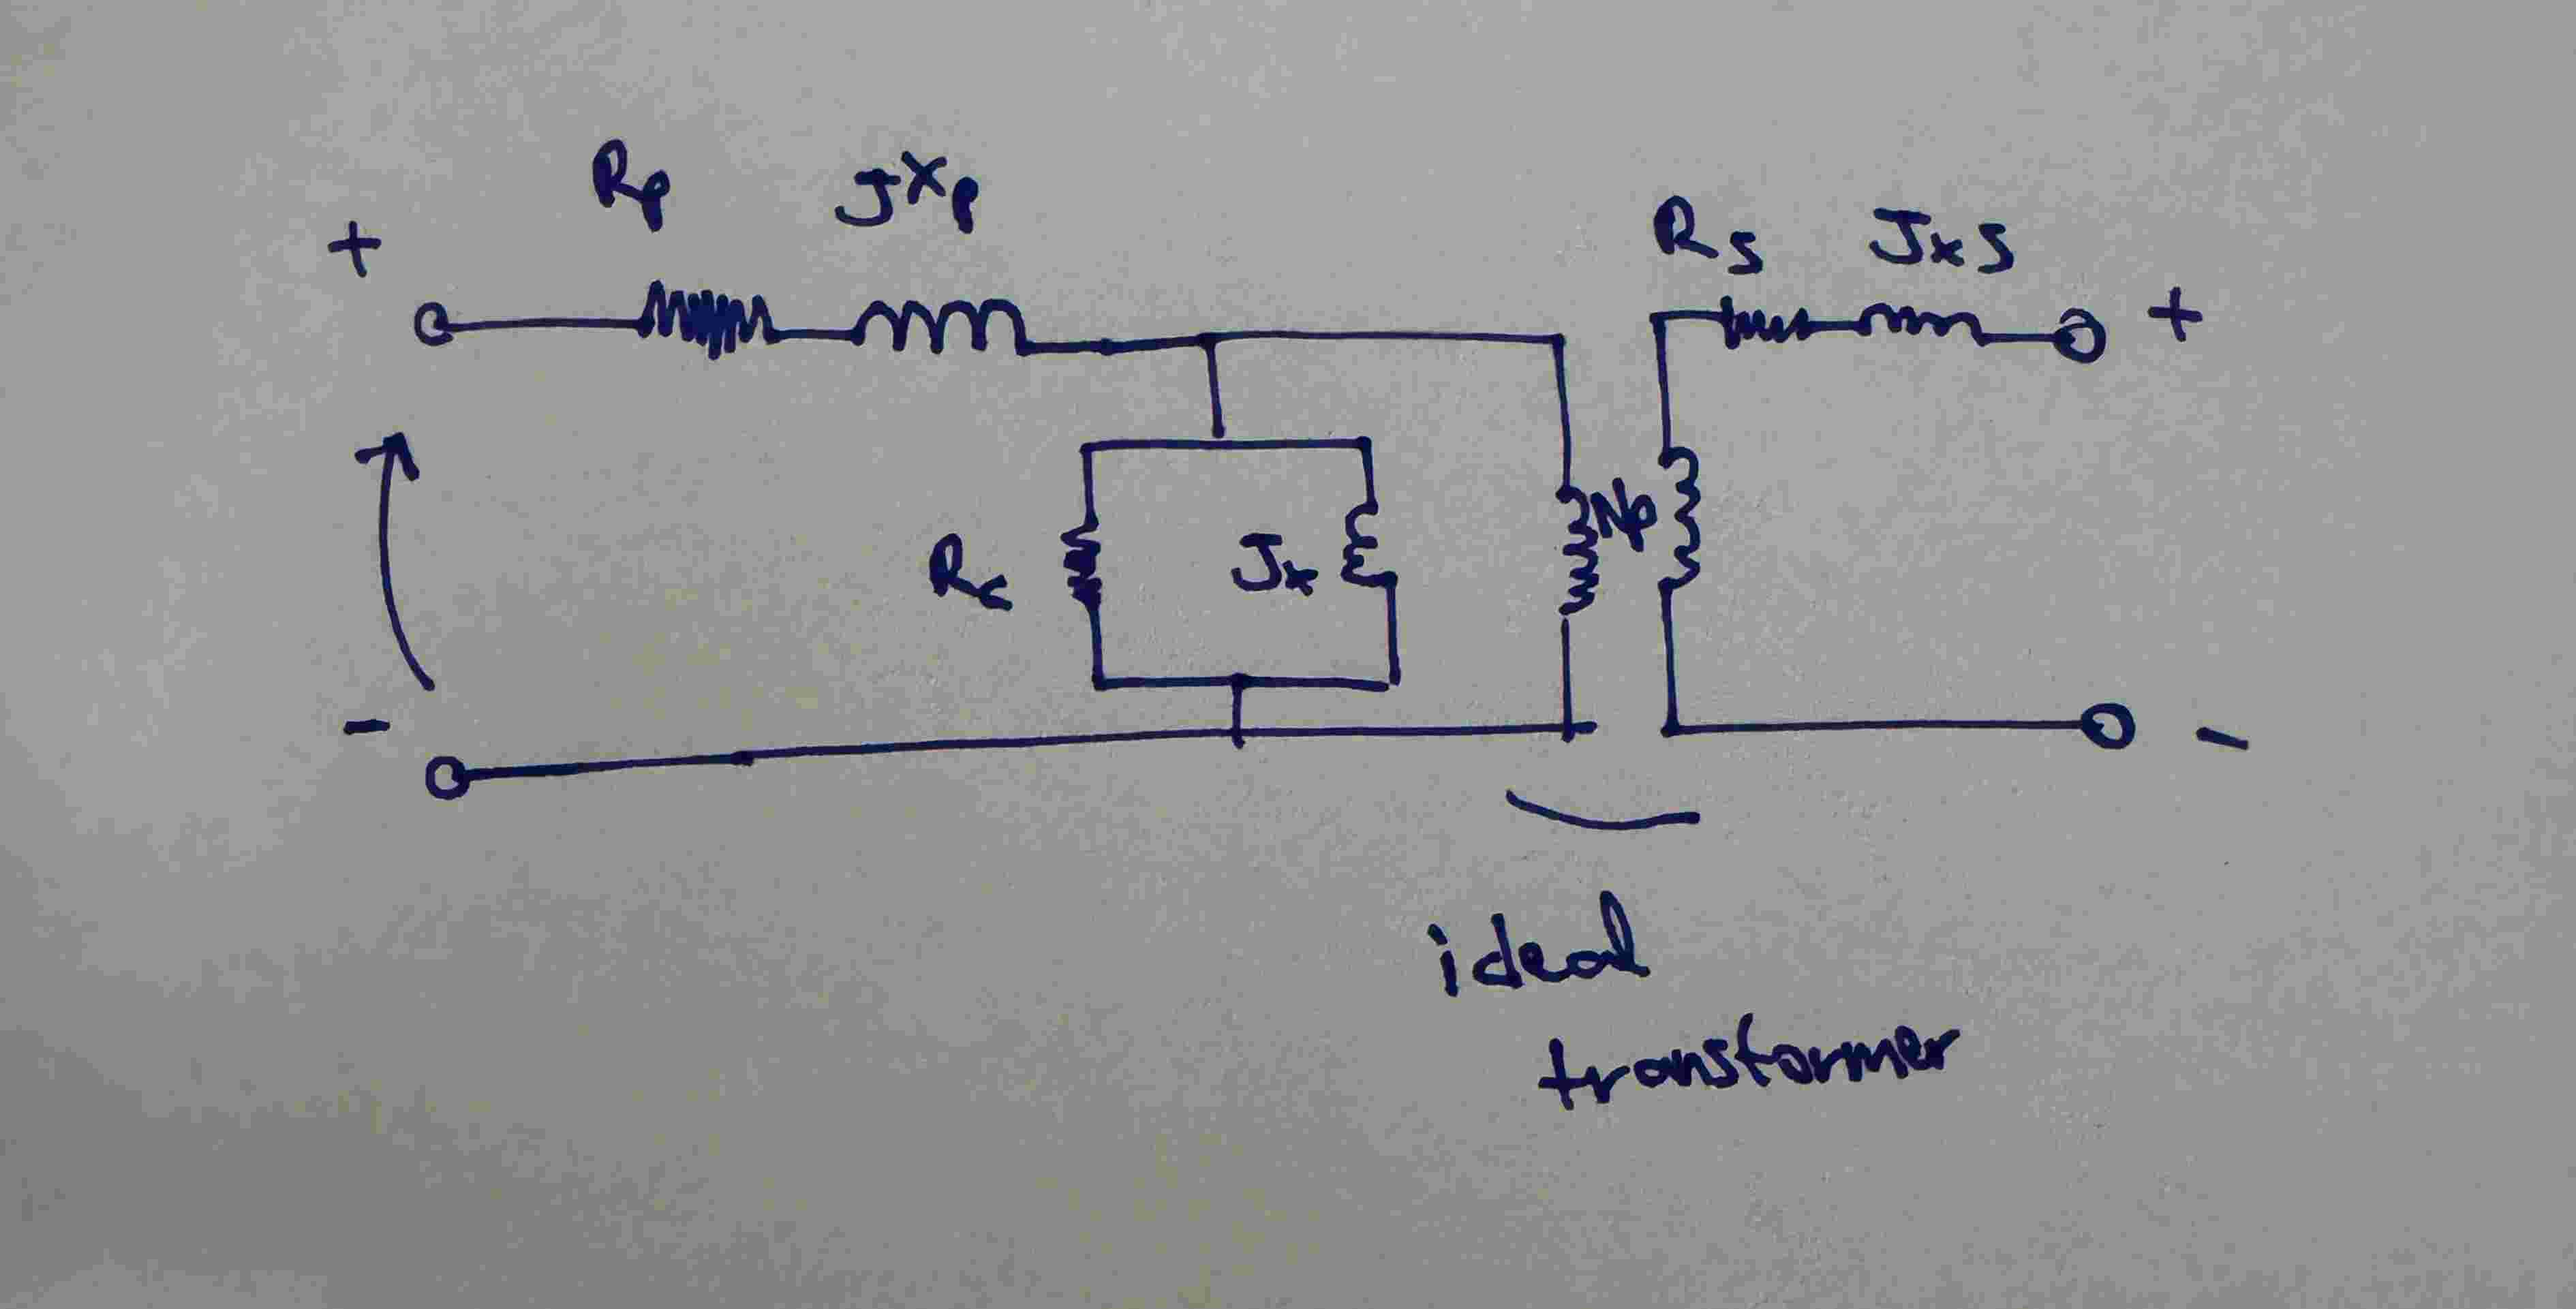 Rp JXp
+
Rs JxS
+
Np
Rc Jx
-
-
ideal
transformer